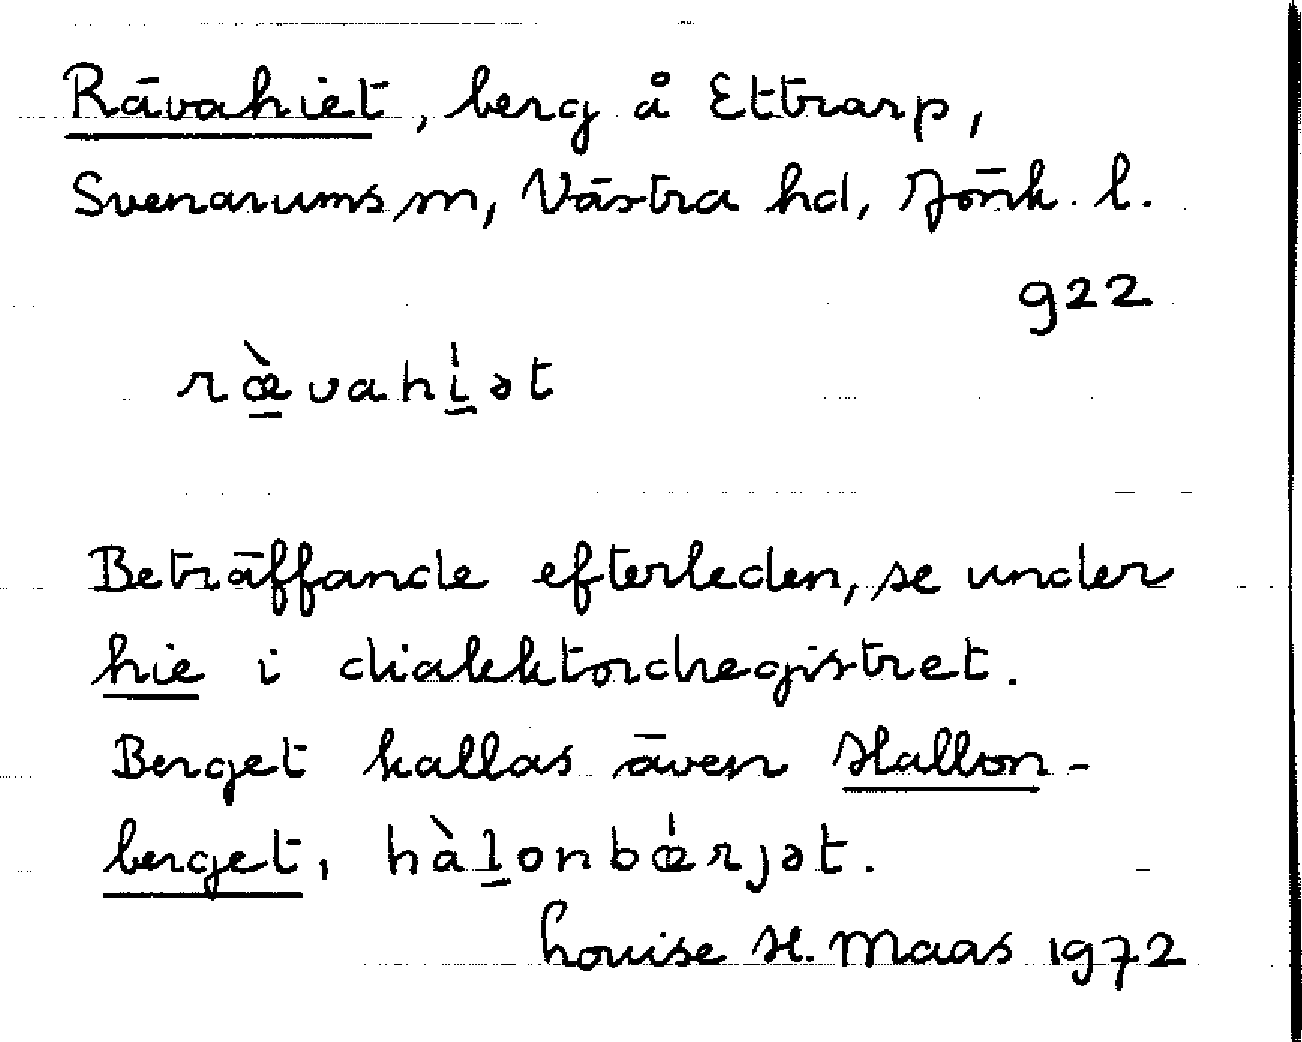 Rävahiet, berg å Ettrarp,
Svenarums sn, Västra hd, Jönk. l.
922
ræ̀vahi̍ət
Beträffande efterleden, se under
hie i dialektordregistret.
Berget kallas även Hallon-
berget, hàlonbæ̍rjət.
Louise H. Maas 1972